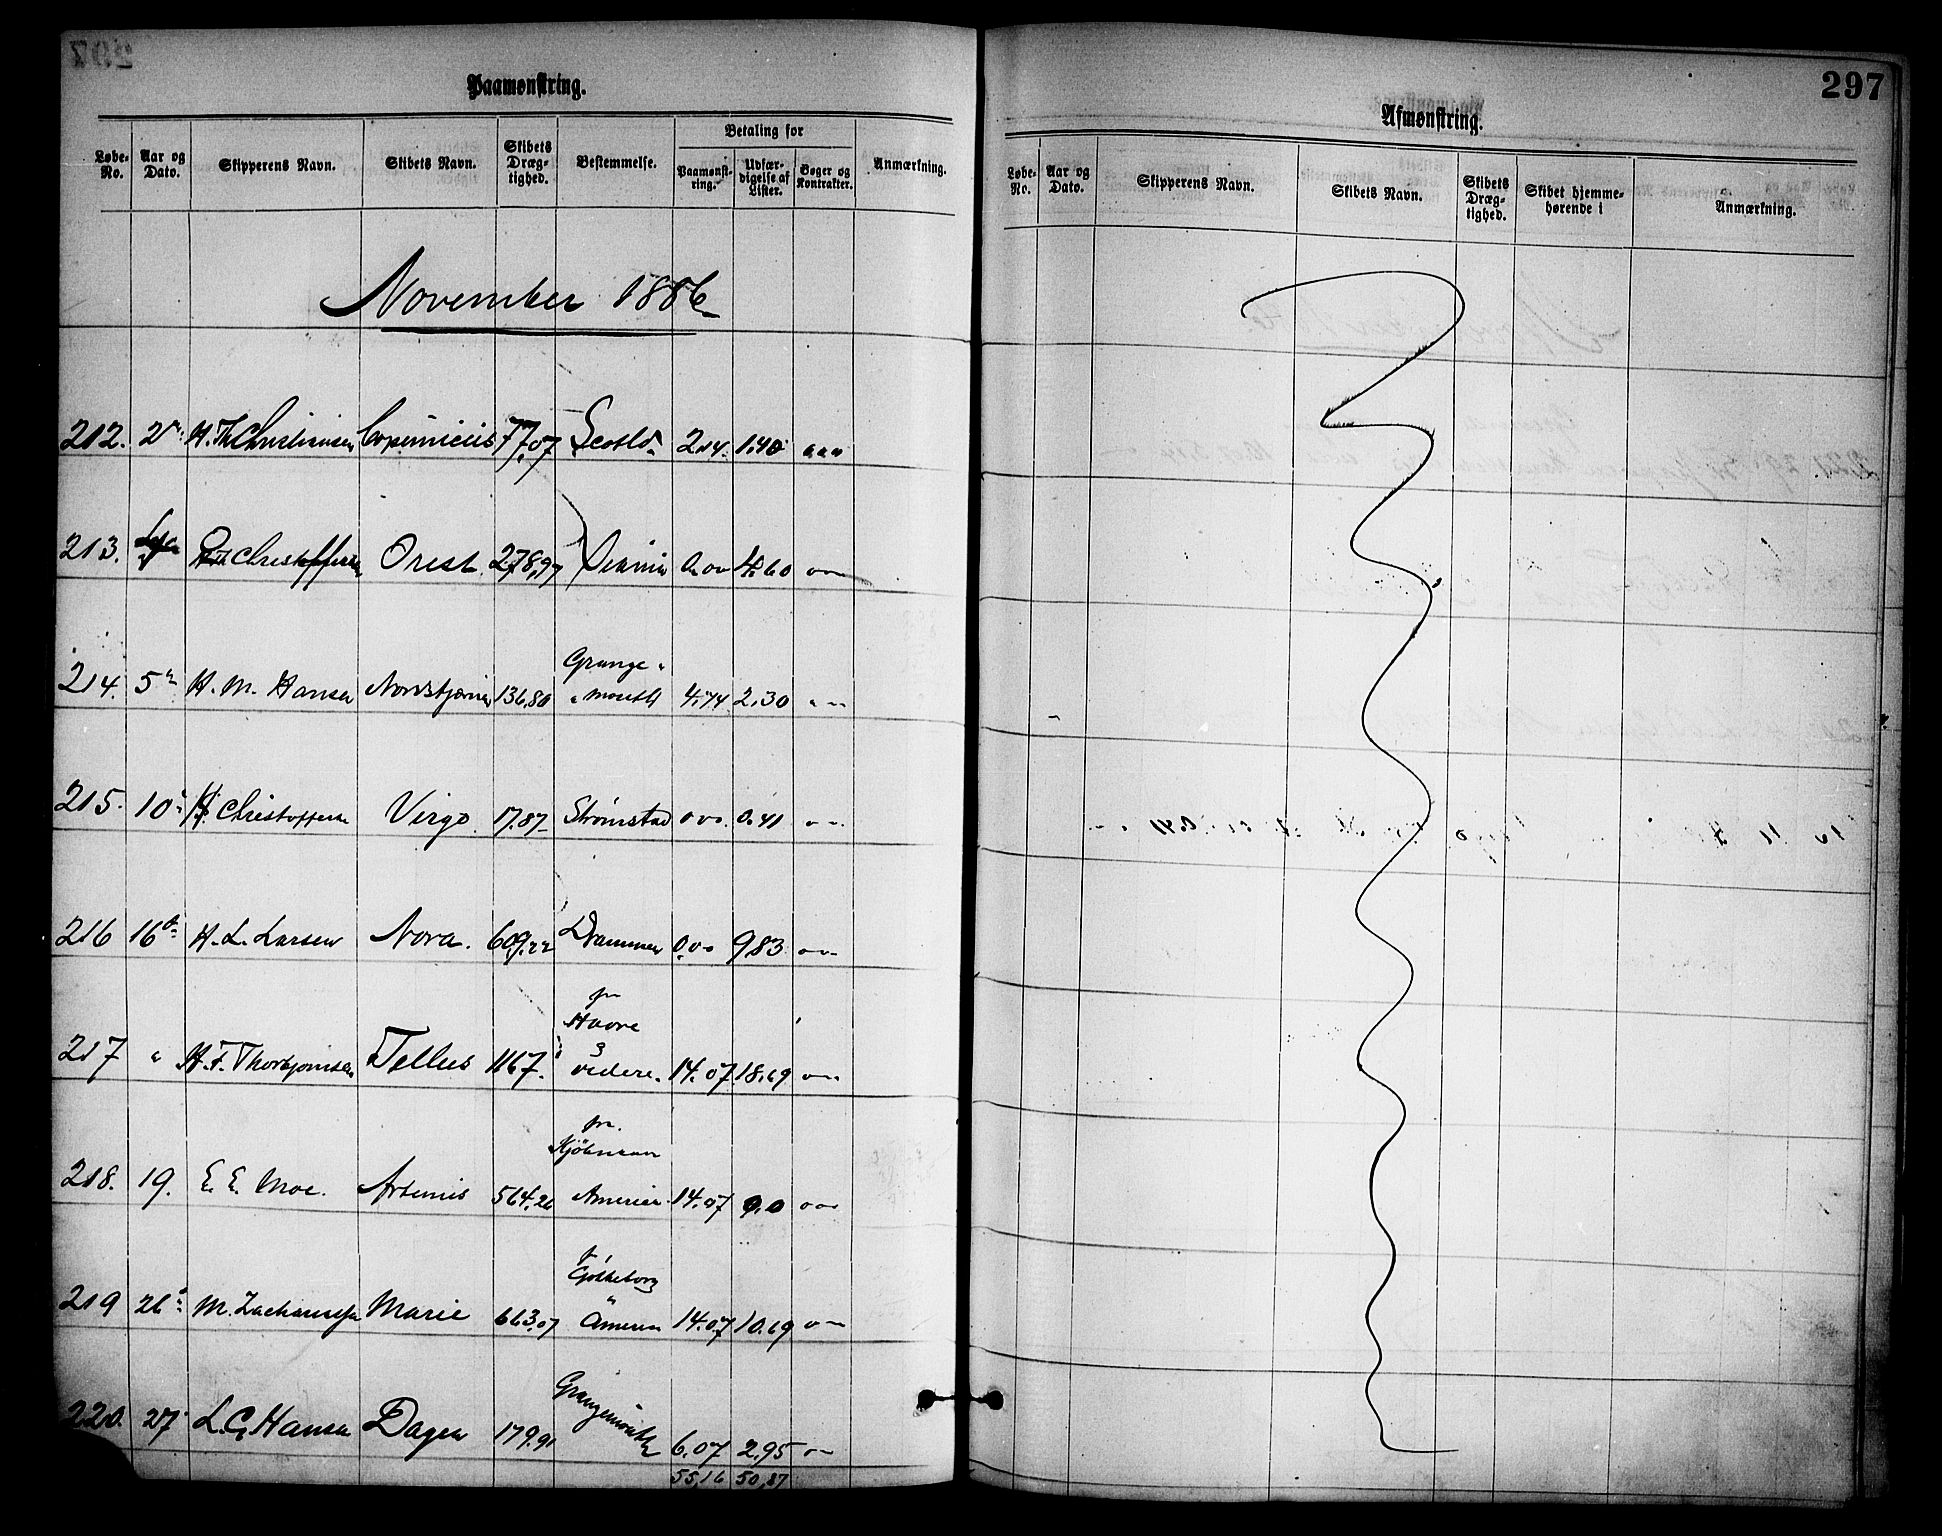 Paamønstring.
Løbe-No. Aar og Dato. Skipperens Navn. Skibets Navn. Skibets Dræg-tighed. Bestemmelse. Betaling for Paamønst-ring. Udfær-digelse af Lister. Bøger og Kontrakter. Anmærkning.
November 1886
212. 2 H. Th Christiansen Copernicus 77,07 Scotld 2,14 1,40
213. Christoffersen Orest 278,97 4,60
Grange
214. 5 H. M. Hansen Nordstjernen 136,80 mouth 4,74 2,30
215. 10 Christoffersen Virgo 17,87 Strømstad 0,41
216 16 H. L. Larsen Nora. 609,22 Drammen 0,00 9,83
fra
Havre
217 " H. F. Thorbjørnsen Tellus 1167. videre. 14.07 18,69
fra
Kjøbenhavn
218. 19. E. E. Moe. Artemis 564,26 Amerika 14.07 0,0
Gøtheborg
219 26 M. Zachariassen Marie 663,07 Amerika 14.07 10.69
Grangemouth
220. 27 L. C. Hansen Dagen 179.91 6.07 2.95
55,16 50,87
297
Afmønstring.
Løbe-No. Aar og Dato. Skipperens Navn. Skibets Navn. Skibets Dræg-tighed. Skibet hjemme-hørende i Anmærkning.